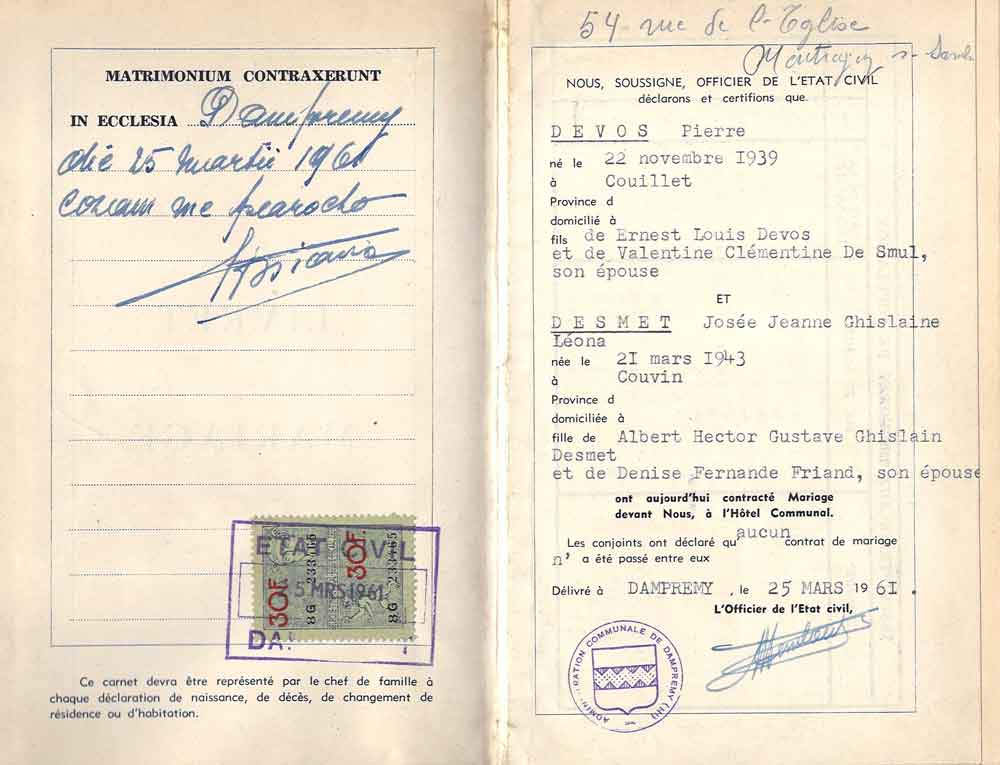 MATRIMONIUM CONTRAXERUNT
IN ECCLESIA Dampremy
die 25 Martii 1961
coram me parocho
ETAT CIVIL
30F. 8G 233465
30F. 8G 233465
25 MRS 1961
DA
Ce carnet devra être représenté par le chef de famille à
chaque déclaration de naissance, de décès, de changement de
résidence ou d'habitation.
54 rue de l'Eglise
NOUS, SOUSSIGNE, OFFICIER DE L'ETAT CIVIL
déclarons et certifions que
DEVOS Pierre
né le 22 novembre 1939
à Couillet
Province d
domicilié à
fils de Ernest Louis Devos
et de Valentine Clémentine De Smul,
son épouse
ET
DESMET Josée Jeanne Ghislaine
Léona
née le 21 mars 1943
à Couvin
Province d
domiciliée à
fille de Albert Hector Gustave Ghislain
Desmet
et de Denise Fernande Friand, son épouse
ont aujourd'hui contracté Mariage
devant Nous, à l'Hôtel Communal.
Les conjoints ont déclaré qu'aucun contrat de mariage
n' a été passé entre eux
Délivré à DAMPREMY, le 25 MARS 1961.
L'Officier de l'Etat civil,
ADMINISTRATION COMMUNALE DE DAMPREMY (Ht)